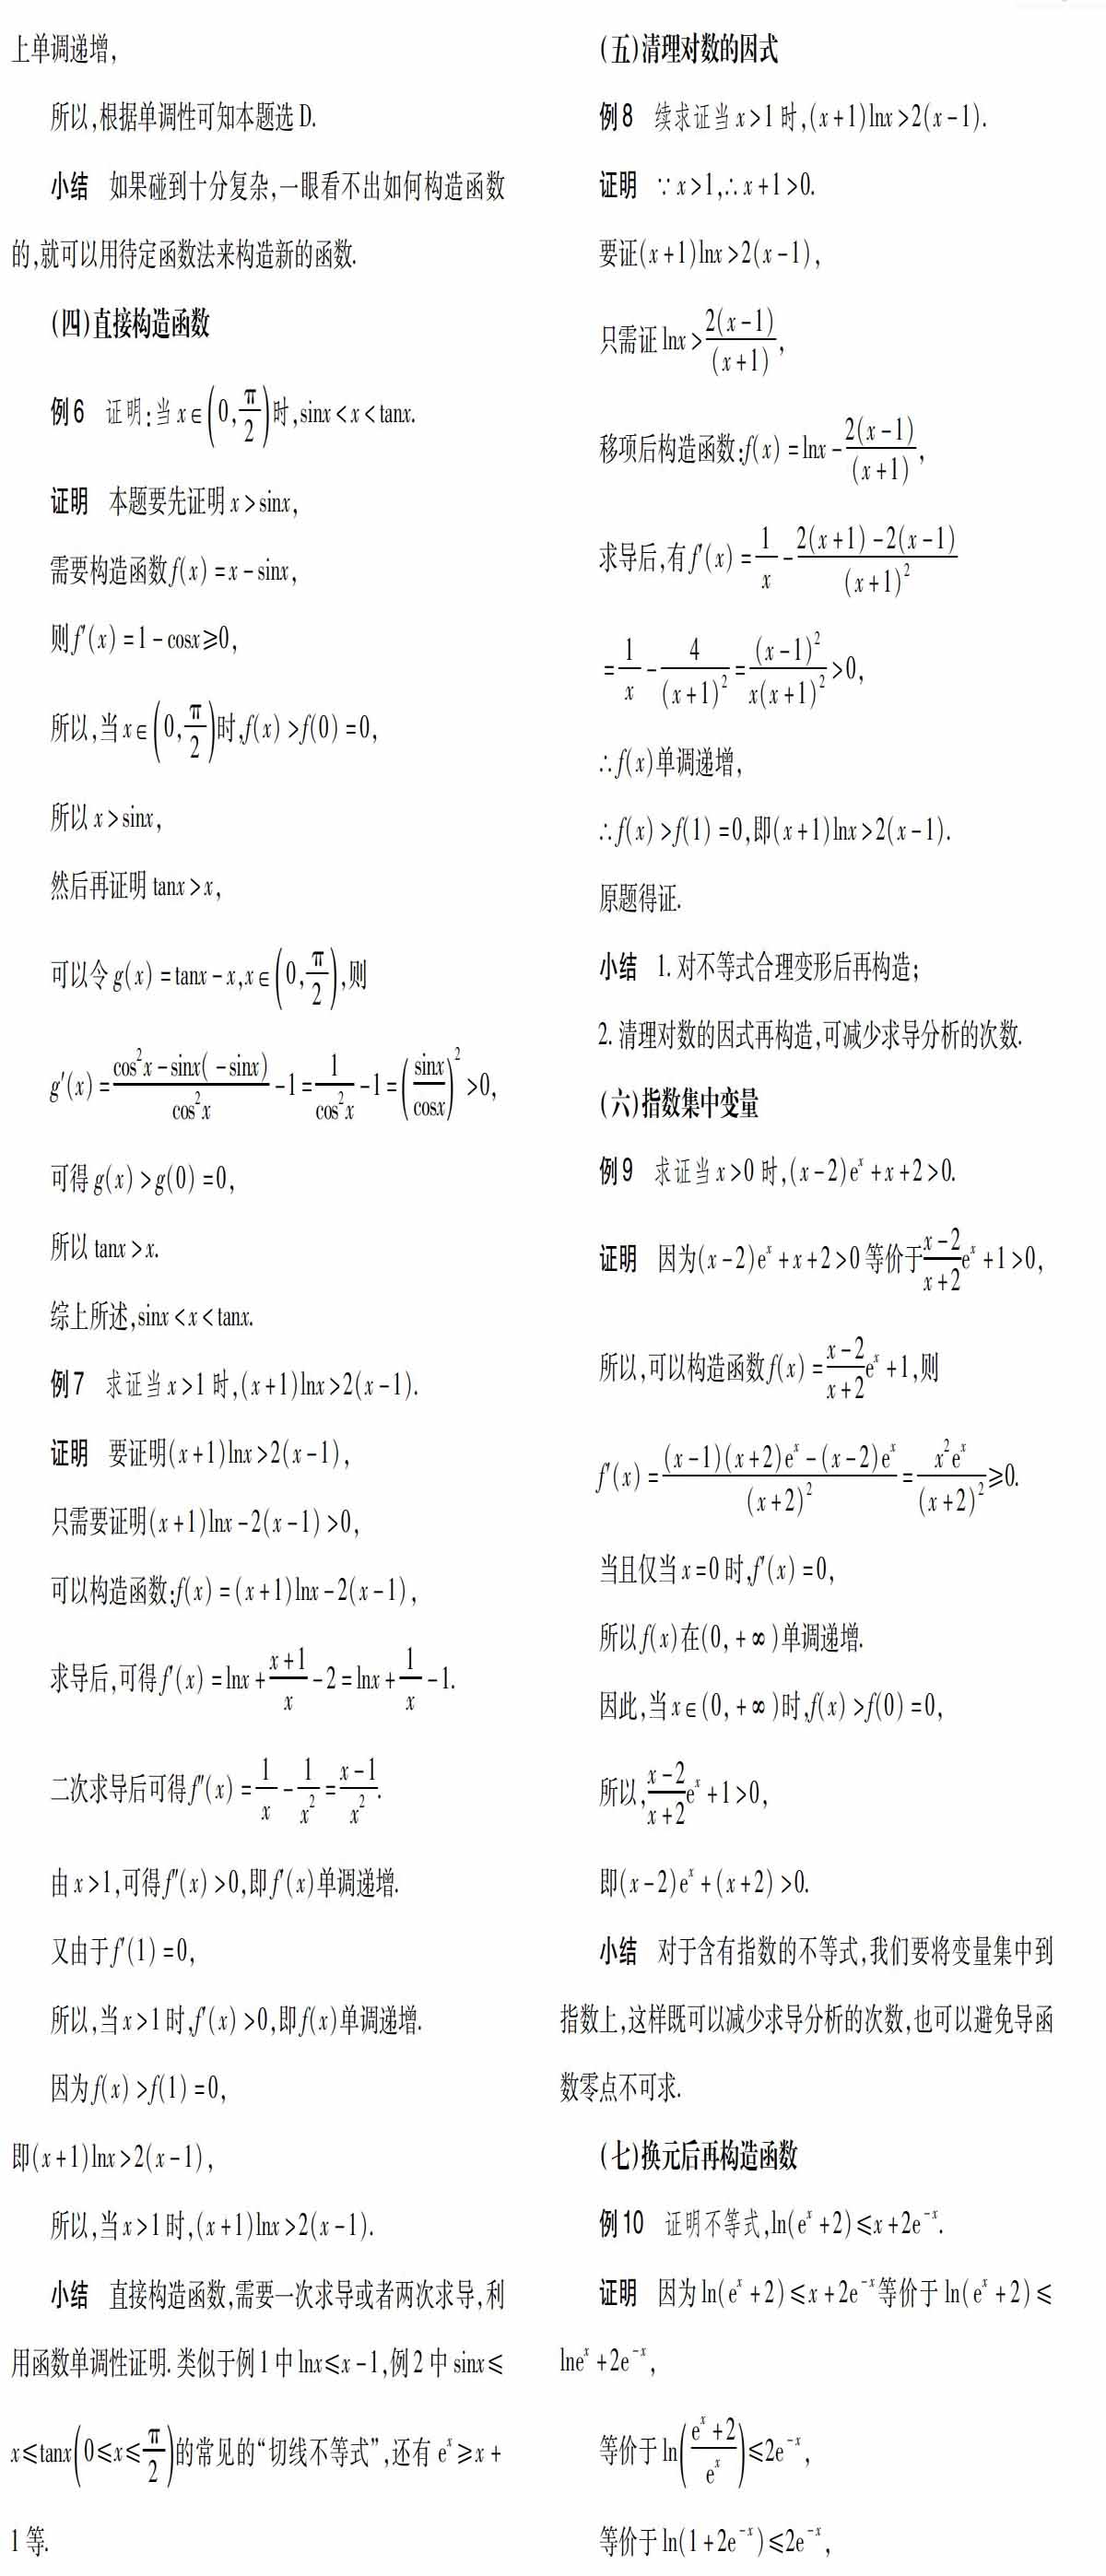 上单调递增,
所以,根据单调性可知本题选 D.
小结 如果碰到十分复杂,一眼看不出如何构造函数
的,就可以用待定函数法来构造新的函数.
(四)直接构造函数
例6 证明:当 x∈(0,π/2)时,sinx<x<tanx.
证明 本题要先证明 x>sinx,
需要构造函数f(x)=x-sinx,
则f′(x)=1-cosx≥0,
所以,当 x∈(0,π/2)时,f(x)>f(0)=0,
所以 x>sinx,
然后再证明 tanx>x,
可以令 g(x)=tanx-x,x∈(0,π/2),则
g′(x)=(cos²x-sinx(-sinx))/(cos²x)-1=1/(cos²x)-1=(sinx/cosx)²>0,
可得 g(x)>g(0)=0,
所以 tanx>x.
综上所述,sinx<x<tanx.
例7 求证当 x>1 时,(x+1)lnx>2(x-1).
证明 要证明(x+1)lnx>2(x-1),
只需要证明(x+1)lnx-2(x-1)>0,
可以构造函数:f(x)=(x+1)lnx-2(x-1),
求导后,可得f′(x)=lnx+(x+1)/x-2=lnx+1/x-1.
二次求导后可得f″(x)=1/x-1/x²=(x-1)/x².
由 x>1,可得f″(x)>0,即f′(x)单调递增.
又由于f′(1)=0,
所以,当 x>1 时,f′(x)>0,即f(x)单调递增.
因为f(x)>f(1)=0,
即(x+1)lnx>2(x-1),
所以,当 x>1 时,(x+1)lnx>2(x-1).
小结 直接构造函数,需要一次求导或者两次求导,利
用函数单调性证明.类似于例1中 lnx≤x-1,例2中 sinx≤
x≤tanx(0≤x≤π/2)的常见的“切线不等式”,还有 eˣ≥x+
1 等.
(五)清理对数的因式
例8 续求证当 x>1 时,(x+1)lnx>2(x-1).
证明 ∵x>1,∴x+1>0.
要证(x+1)lnx>2(x-1),
只需证 lnx>2(x-1)/(x+1),
移项后构造函数:f(x)=lnx-2(x-1)/(x+1),
求导后,有f′(x)=1/x-(2(x+1)-2(x-1))/(x+1)²
=1/x-4/(x+1)²=(x-1)²/(x(x+1)²)>0,
∴f(x)单调递增,
∴f(x)>f(1)=0,即(x+1)lnx>2(x-1).
原题得证.
小结 1.对不等式合理变形后再构造;
2.清理对数的因式再构造,可减少求导分析的次数.
(六)指数集中变量
例9 求证当 x>0 时,(x-2)eˣ+x+2>0.
证明 因为(x-2)eˣ+x+2>0 等价于(x-2)/(x+2)eˣ+1>0,
所以,可以构造函数f(x)=(x-2)/(x+2)eˣ+1,则
f′(x)=((x-1)(x+2)eˣ-(x-2)eˣ)/(x+2)²=x²eˣ/(x+2)²≥0.
当且仅当 x=0 时,f′(x)=0,
所以f(x)在(0,+∞)单调递增.
因此,当 x∈(0,+∞)时,f(x)>f(0)=0,
所以,(x-2)/(x+2)eˣ+1>0,
即(x-2)eˣ+(x+2)>0.
小结 对于含有指数的不等式,我们要将变量集中到
指数上,这样既可以减少求导分析的次数,也可以避免导函
数零点不可求.
(七)换元后再构造函数
例10 证明不等式,ln(eˣ+2)≤x+2e⁻ˣ.
证明 因为 ln(eˣ+2)≤x+2e⁻ˣ等价于 ln(eˣ+2)≤
lneˣ+2e⁻ˣ,
等价于 ln((eˣ+2)/eˣ)≤2e⁻ˣ,
等价于 ln(1+2e⁻ˣ)≤2e⁻ˣ,